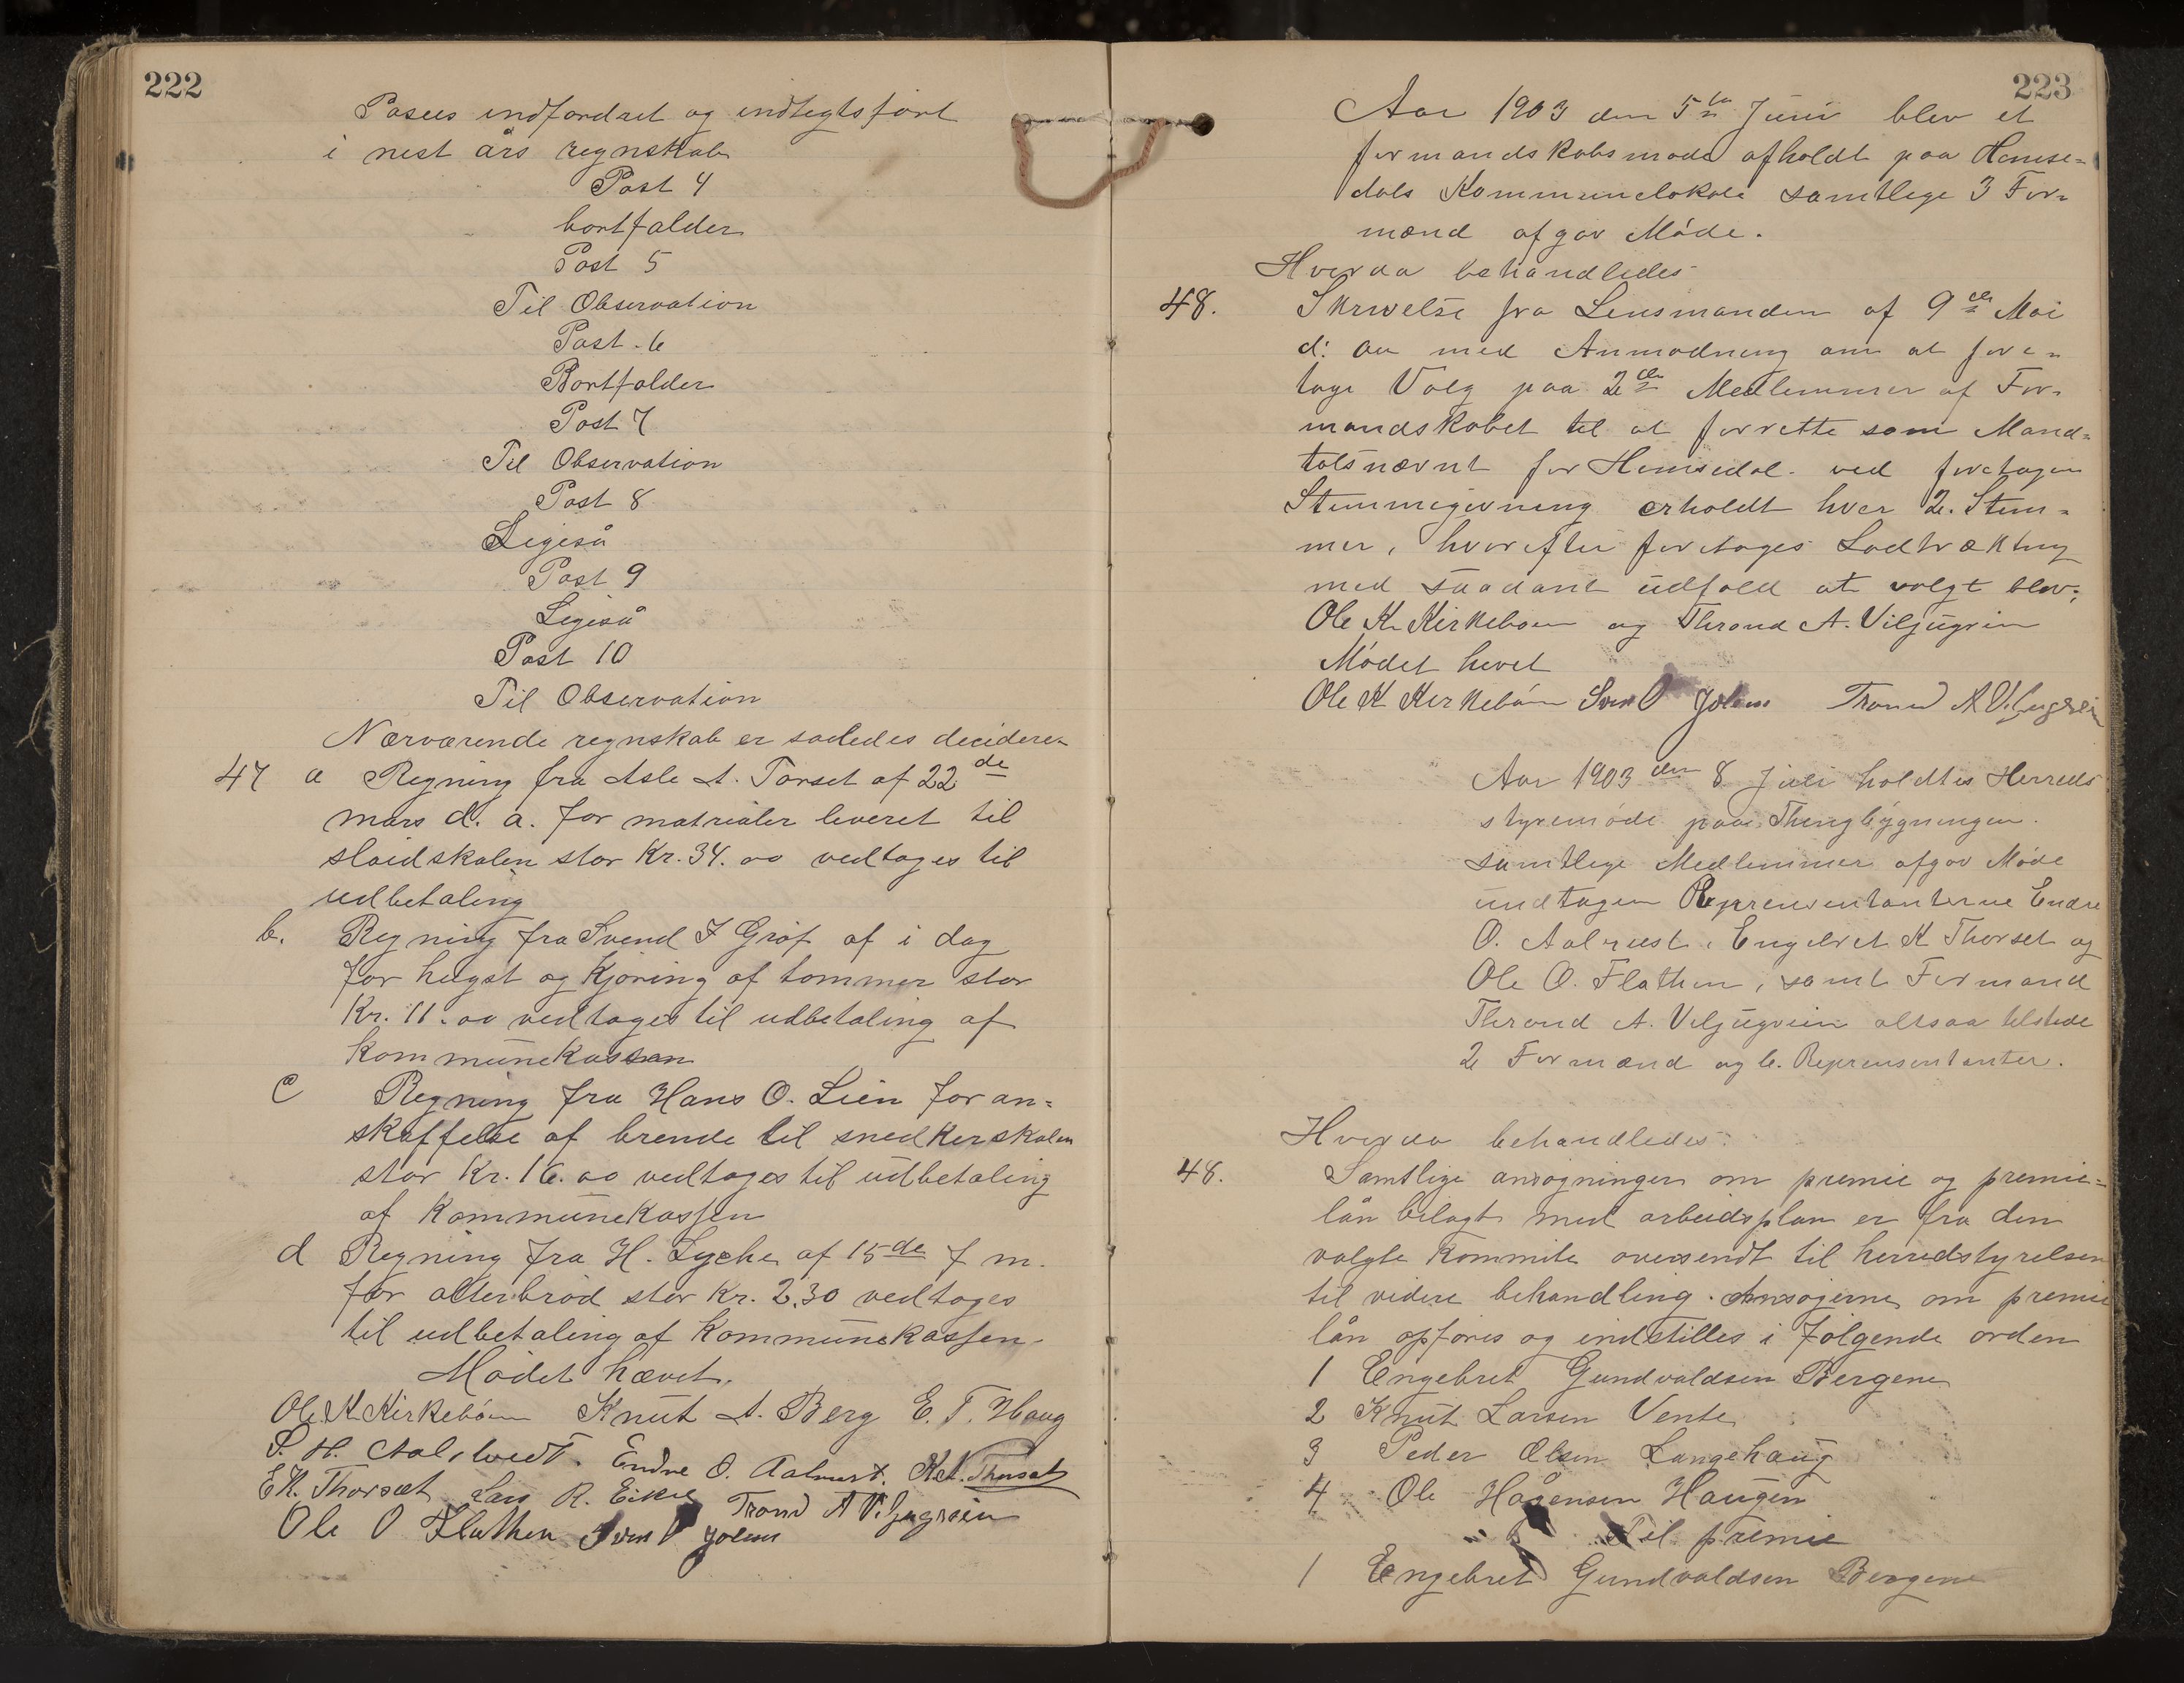 222
Poseus indfordret og indtegtsført
i nest års regnskab
Post 4
bortfalder
Post 5
Til Observation
Post 6
Bortfalder
Post 7
Til Observation
Post 8
Ligeså
Post 9
Ligeså
Post 10
Til Observation
Nærværende regnskab er saaledes decidere-
47 a Regning fra Asle A. Torset af 22de
mars d. a. for matrialer leveret til
sloidskolen stor Kr. 34.00 vedtages til
udbetaling
b. Regning fra Svend I Grøf af i dag
for hugst og Kjøring af tømmer stor
Kr. 11.00 vedtages til udbetaling af
Kommunekassen
c Regning fra Hans O. Lien for an-
skaffelse af brende til snedkerskolen
stor Kr. 16.00 vedtages til udbetaling
af Kommunekassen
d Regning fra H. Lyche af 15de f m.
for alterbrød stor Kr. 2.30 vedtages
til udbetaling af Kommunekassen
Mødet hævet.
Ole K. Kirkebøen Knut A. Berg E. T. Haug
S. H. Aalstvedt. Endre O. Aalrust. K A. Thorset
E K. Thorset Lars R. Eikre Trond A Viljugrein
Ole O Flathen Sven O Jolen
223
Aar 1903 den 5te Juni blev et
formandskabsmøde afholdt paa Hemse-
dals Kommunelokale samtlege 3 For-
mænd afgav Møde.
Hvorda behandledes
48. Skrivelse fra Lensmanden af 9de Mai
d: aa med Anmodning om at fore-
tage Valg paa 2de Medlemmer af For-
mandskabet til at forrette som Mand-
talsnævnt for Hemsedal. ved foretagen
Stemmegivning erholdt hver 2. Stem-
mer, hvorefter foretages Lodtrækning
med saadant udfald at valgt blev:
Ole K. Kirkebøen og Thrond A. Viljugrein
Mødet hevet
Ole K Kirkebøen Sven O Jolen Trond A Viljugrein
Aar 1903 den 8 Juli holdtes Herreds
styremøde paa Thingbygningen.
samtlege Medlemmer afgav Møde
undtagen Reprensentanterne Endre
O. Aalrust, Engebret K Thorset og
Ole O. Flathen, samt Formand
Thrond A. Viljugrein altsaa tilstede
2 Formænd og 6. Reprensentanter.
Hvorda behandledes:
48. Samtlige ansøgninger om premie og premie-
lån bilagt med arbeidsplan er fra den
valgte Kommite oversendt til herredstyrelsen
til videre behandling. Ansøgerne om premie
lån opføres og indstilles i følgende orden
1 Engebret Gundvaldsen Bergene
2 Knut Larsen Vente
3 Peder Olsen Langehaug
4 Ole Hågensen Haugen
Til premie
1 Engebret Gundvaldsen Bergene